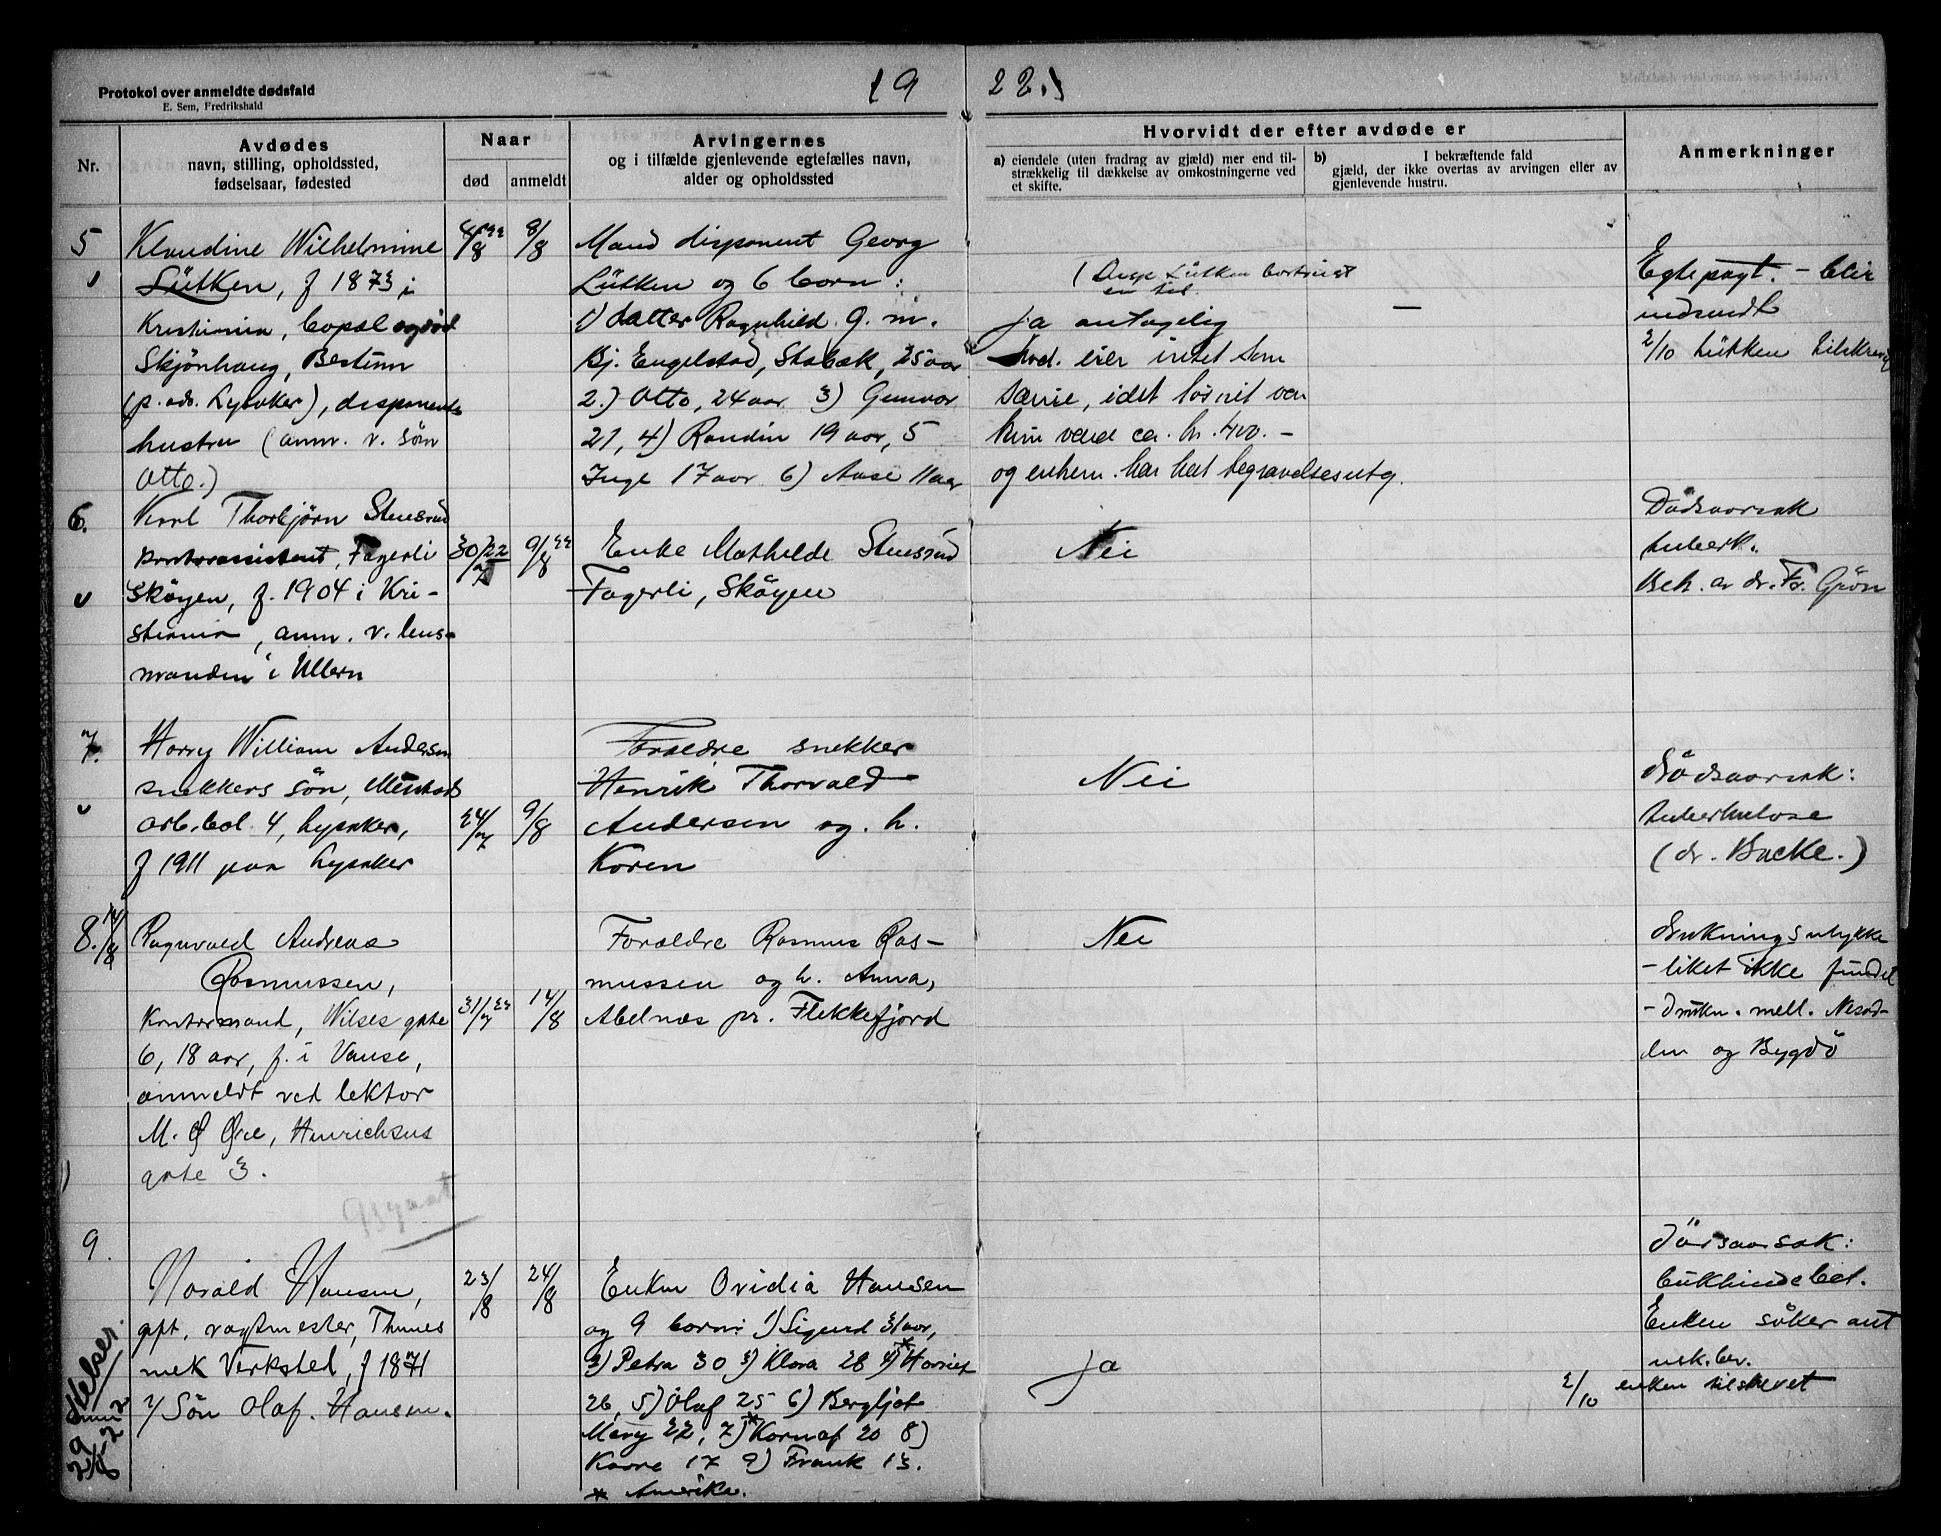 Protokol over anmeldte dødsfald
E. Sem, Fredrikshald
19 22.
Nr.
Avdødes
navn, stilling, opholdssted,
fødselsaar, fødested
Naar
død
anmeldt
Arvingernes
og i tilfælde gjenlevende egtefælles navn,
alder og opholdssted
Hvorvidt der efter avdøde er
a) eiendele (uten fradrag av gjæld) mer end til-
strækkelig til dækkelse av omkostningerne ved
et skifte.
b) I bekræftende fald
gjæld, der ikke overtas av arvingen eller av
gjenlevende hustru.
Anmerkninger
5
Klaudine Wilhelmine
Lütken, f 1873 i
Kristiania, bopæl og død
Skjönhaug, Bestum
(p. adr. Lysaker), disponents
hustru (anm. v. sön
Otto.)
4/8
8/8
Mand disponent Georg
Lütken og 6 born:
1) datter Ragnhild g. m.
Bj. Engelstad, Stabæk, 25 aar
2.) Otto, 24 aar 3) Gunvor
21, 4) Randin 19 aar, 5
Inge 17 aar 6) Aase 11 aar
ja antagelig
avd. eier intet som
særeie, idet lösöret var
kun værd ca. kr. 400.-
og enkem. har hat begravelsesutg.
—
Egtepagt. - blir
indsendt
2/10 Lütken tilskrevet
6.
Karl Thorbjörn Stensrud
kontorassistent, Fagerli
Sköyen, f. 1904 i Kri-
stiania, anm. v. lens-
manden i Ullern
30/7 22
9/8 22
Enke Mathilde Stensrud
Fagerli, Sköyen
Nei
Dödsaarsak
tuberk.
Beh. av dr. Fr. Grön
7.
Harry William Andersen
snekkers sön, Mustads
arb.bol. 4, Lysaker,
f 1911 paa Lysaker
24/7
9/8
Forældre snekker
Henrik Thorvald
Andersen og h.
Karen
Nei
Dödsaarsak:
tuberkulose
(dr. Backe.)
8. 14/8
Ragnvald Andreas
Rasmussen,
Kontormand, Wilses gate
6, 18 aar, f. i Vanse,
anmeldt ved lektor
M. Ø Øre, Henrichsens
gate 3.
31/7 22
14/8
Forældre Rasmus Ras-
mussen og h. Anna,
Abelnæs pr. Flekkefjord
Nei
Drukningsulykke
- liket ikke fundet
- drukn. mell. Nesod-
den og Bygdö
9.
Harald Hansen,
gift, vagtmester, Thunes
mek Verksted, f 1871
v/ Sön Olaf. Hansen.
23/8
24/8
Enken Ovidia Hansen
og 9 born: 1) Sigurd 31 aar,
2) Petra 30 3) Klara 28 4)* Harriet
26, 5) Olaf 25 6) Bergljot
Mary 22, 7)* Kornaf 20 8)
Kaare 17 9) Frank 13.
* Amerika.
Ja
Dödsaarsak:
bukhindebet.
Enken söker ant
usk.bev.
2/10 enken tilskrevet
29/8-22